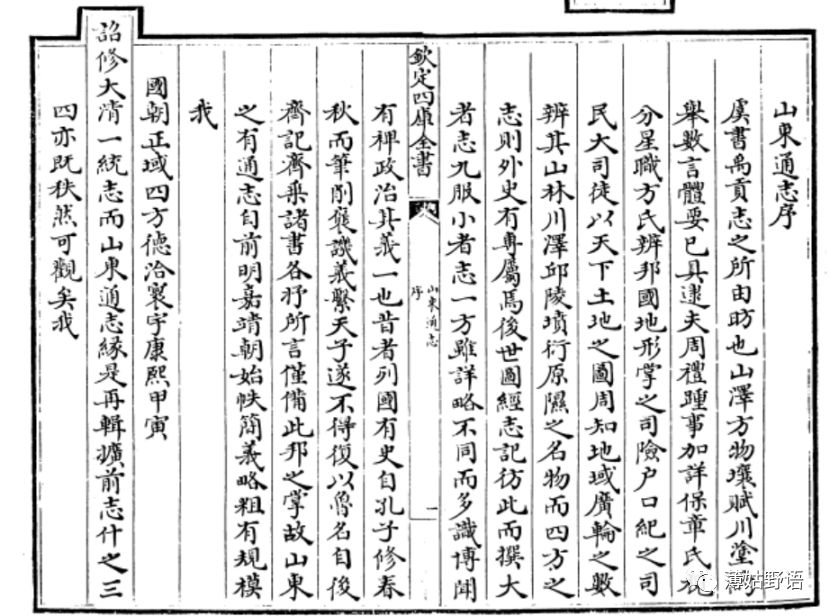 山東通志序
虞書禹貢志之所由昉也山澤方物壤賦川塗
舉數言體要已具逮夫周禮踵事加詳保章氏
分星職方氏辨邦國地形掌之司險户口紀之司
民大司徒以天下土地之圖周知地域廣輪之數
辨其山林川澤邱陵墳衍原隰之名物而四方之
志則外史有專屬焉後世圖經志記彷此而撰大
者志九服小者志一方雖詳略不同而多識博聞
欽定四庫全書
山東通志
序
一
有裨政治其義一也昔者列國有史自孔子修春
秋而筆削褒譏義繫天子遂不得復以魯名自後
齊記齊乘諸書各抒所言僅備此邦之掌故山東
之有通志自前明嘉靖朝始帙簡義略粗有規模
我
國朝正域四方德洽寰宇康熙甲寅
詔修大清一統志而山東通志緣是再輯擴前志什之三
四亦既秩然可觀矣我
薄姑野语